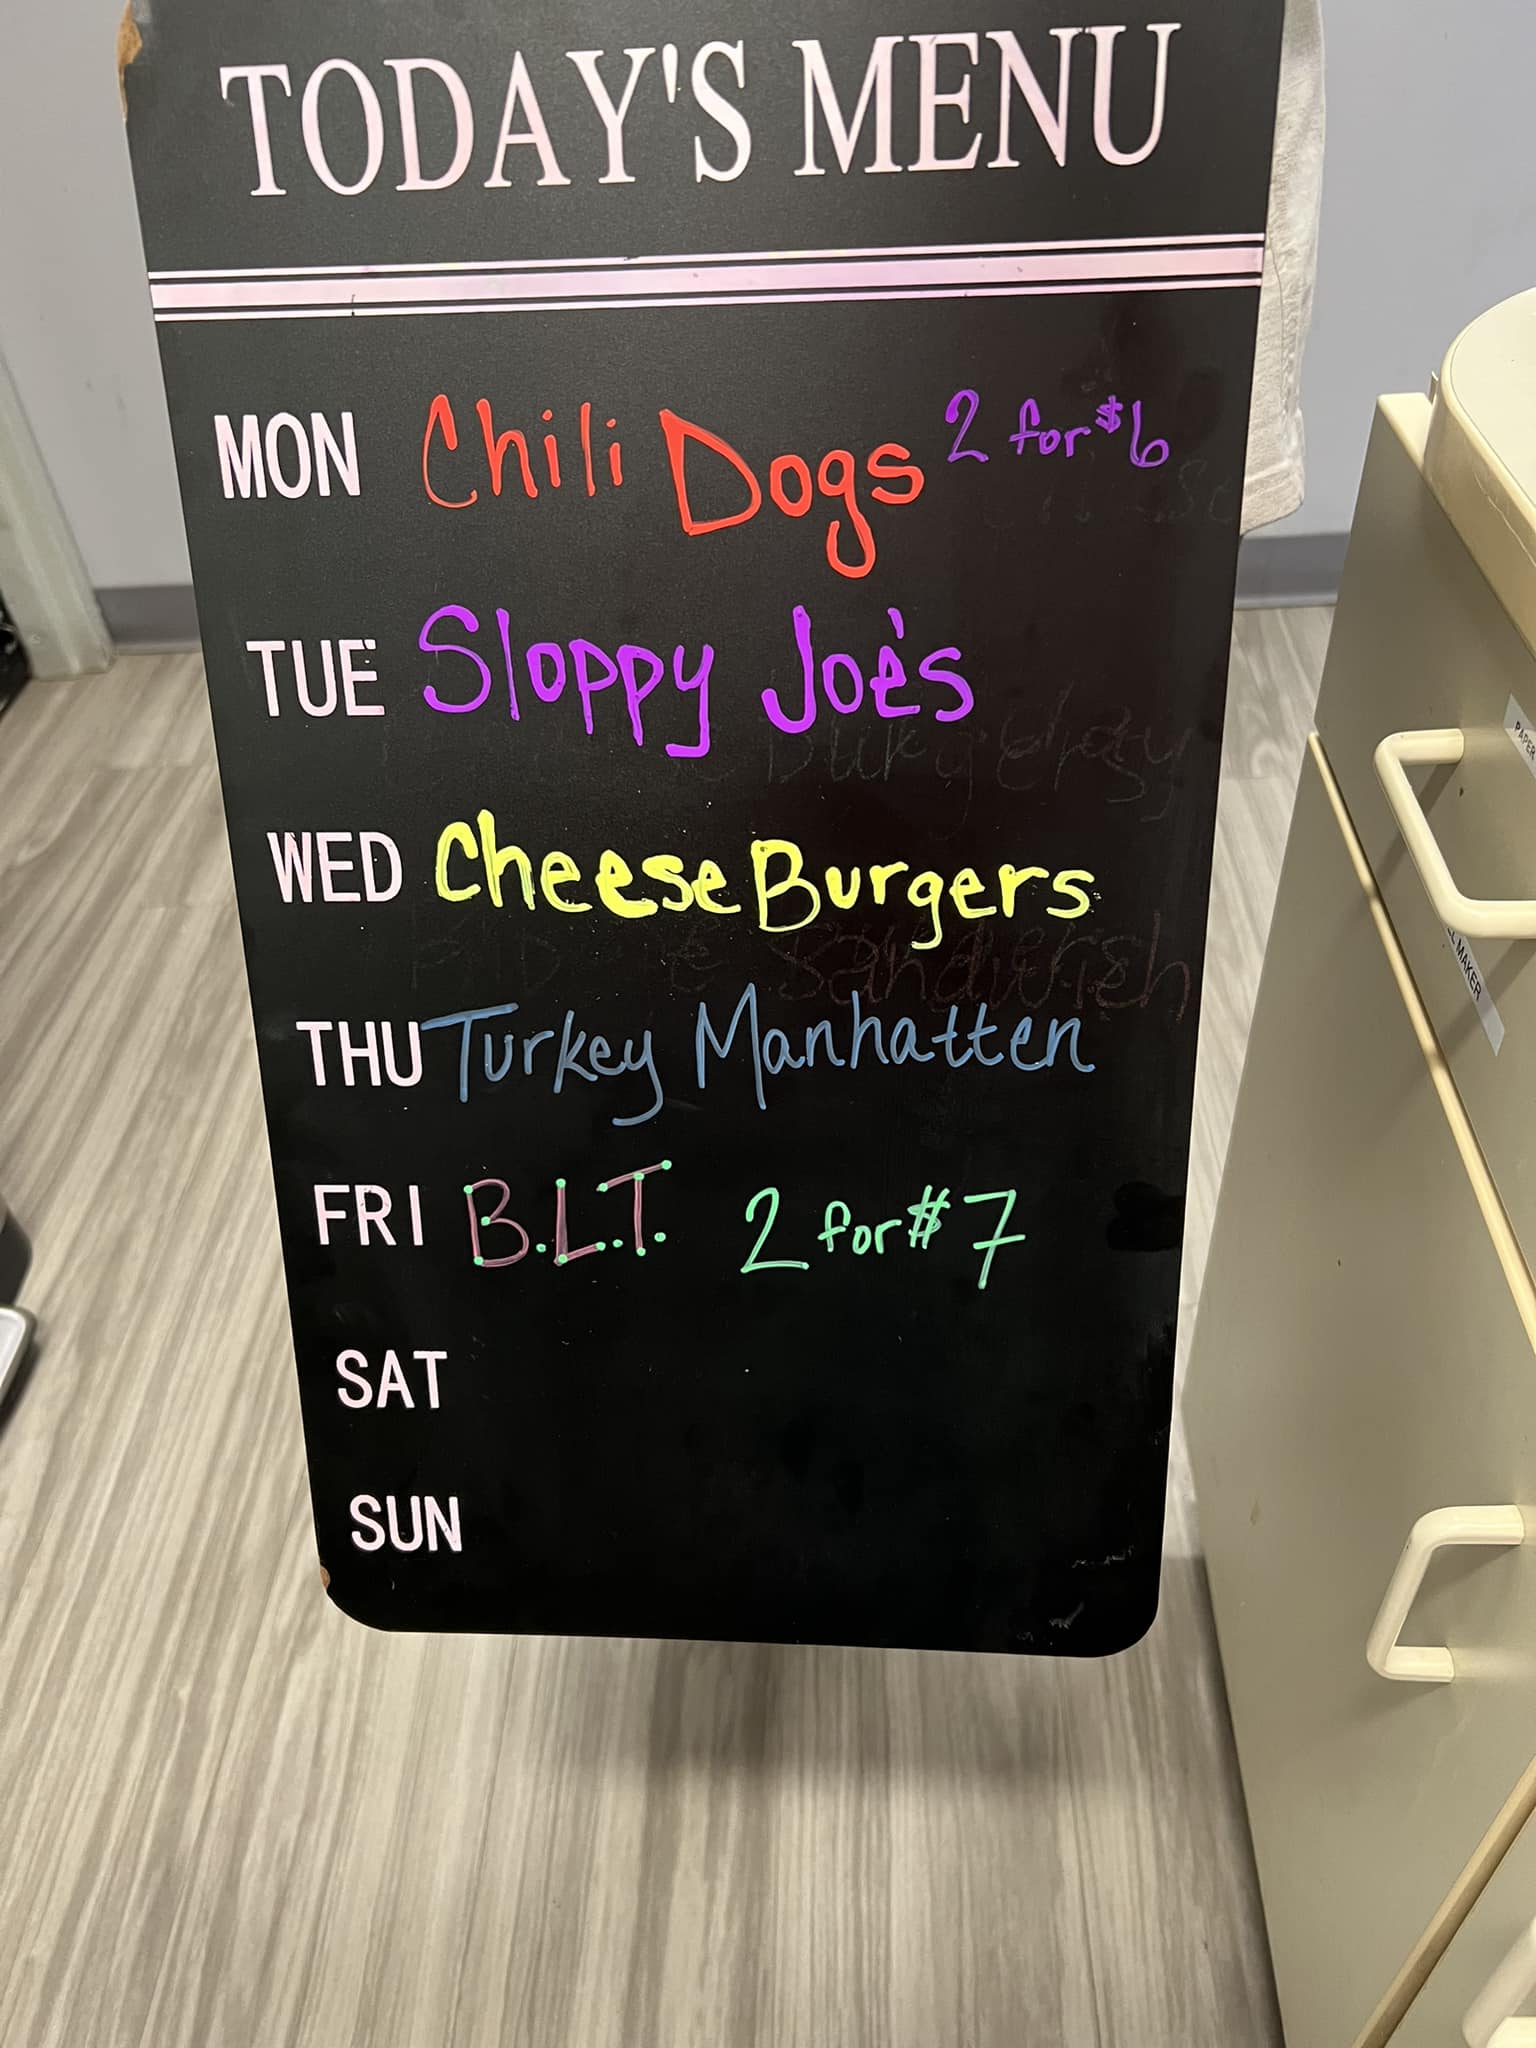 TODAY'S MENU
MON Chili Dogs 2 for $6
TUE Sloppy Joe's
Burgers
WED Cheese Burgers
Sandwich
THU Turkey Manhatten
FRI B.L.T. 2 for $7
SAT
SUN
PAPER
MAKER